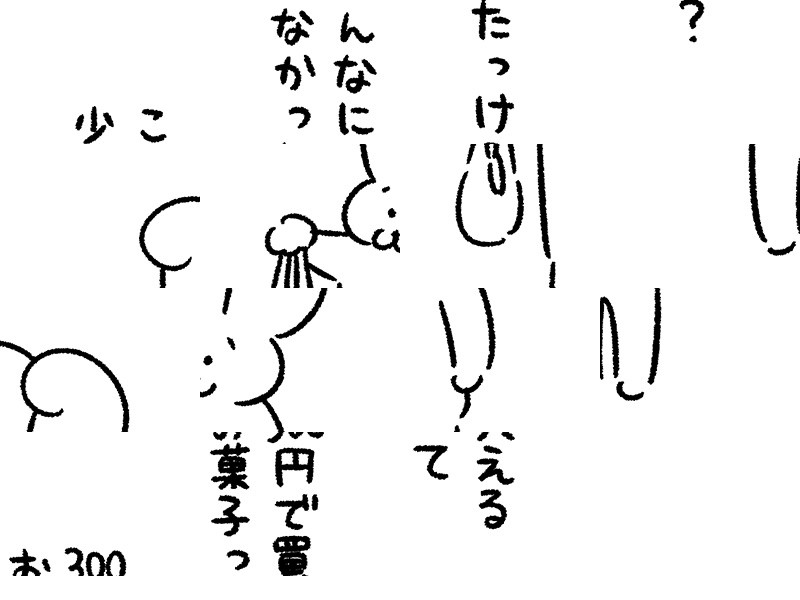 ?
たっけ
んなに
なかっ
こ
少
える
て
円で買
菓子っ
300
お